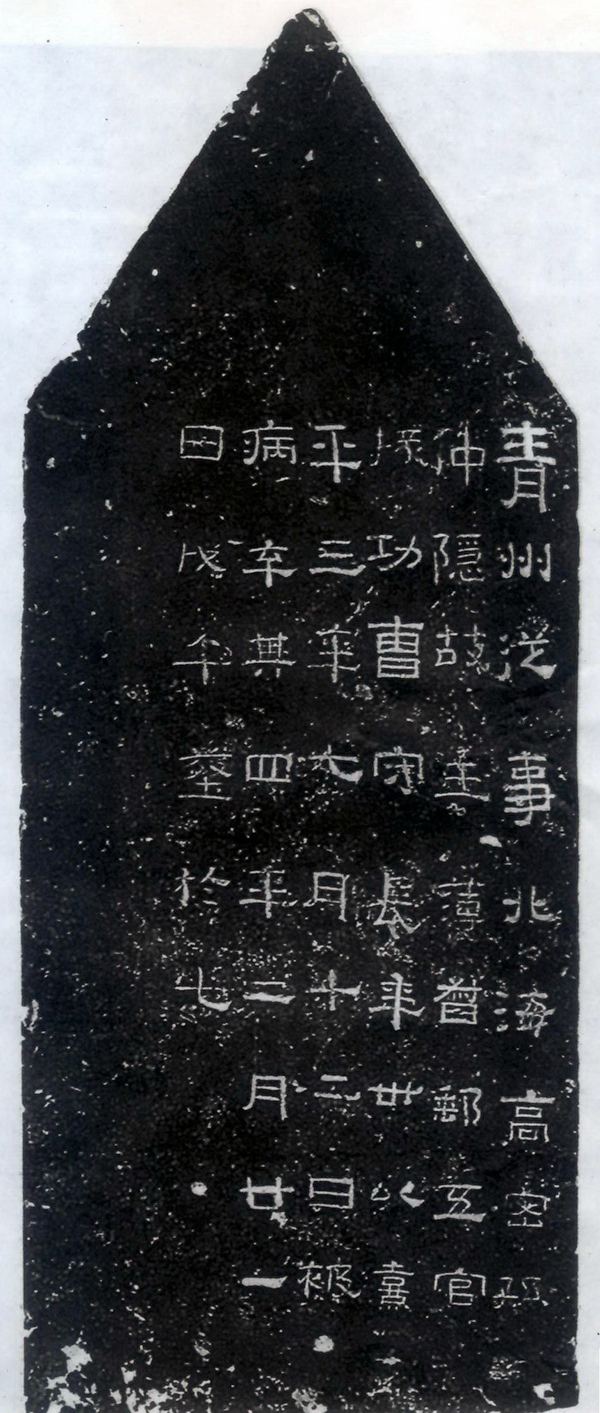 青州從事北海高密孫
仲隱故主薄督郵五官
掾功曹守長年卅以熹
平三年七月十二日被
病卒其四年二月廿一
日戊午塟於此